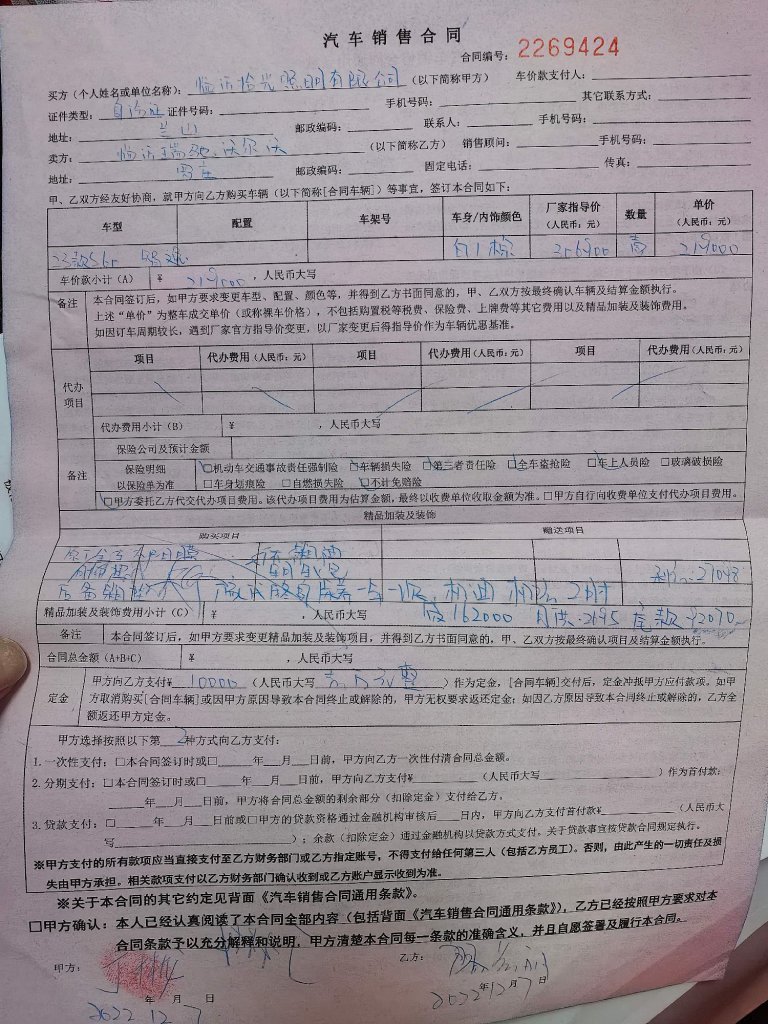 汽车销售合同
合同编号：2269424
买方（个人姓名或单位名称）：临沂拾光照明有限公司（以下简称甲方） 车价款支付人：
证件类型：身份证 证件号码： 手机号码： 其它联系方式：
地址：兰山 邮政编码： 联系人： 手机号码：
卖方：临沂瑞驰沃尔沃（以下简称乙方） 销售顾问： 手机号码：
地址： 邮政编码： 固定电话： 传真：
甲、乙双方经友好协商，就甲方向乙方购买车辆（以下简称[合同车辆]）等事宜，签订本合同如下：
车型 配置 车架号 车身/内饰颜色 厂家指导价（人民币：元） 数量 单价（人民币：元）
23款S60 白/棕 306900 壹 219000
车价款小计（A） ¥ 219000，人民币大写
备注 本合同签订后，如甲方要求变更车型、配置、颜色等，并得到乙方书面同意的，甲、乙双方按最终确认车辆及结算金额执行。
上述“单价”为整车成交单价（或称裸车价格），不包括购置税等税费、保险费、上牌费等其它费用以及精品加装及装饰费用。
如因订车周期较长，遇到厂家官方指导价变更，以厂家变更后得指导价作为车辆优惠基准。
代办项目 项目 代办费用（人民币：元） 项目 代办费用（人民币：元） 项目 代办费用（人民币：元）
代办费用小计（B） ¥ ，人民币大写
备注 保险公司及预计金额
保险明细以保险单为准 □机动车交通事故责任强制险 □车辆损失险 □第三者责任险 □全车盗抢险 □车上人员险 □玻璃破损险
□车身划痕险 □自燃损失险 □不计免赔险
□甲方委托乙方代交代办项目费用。该代办项目费用为估算金额，最终以收费单位收取金额为准。□甲方自行向收费单位支付代办项目费用。
精品加装及装饰
购买项目 赠送项目
利息：27048
机油 机滤 2时
精品加装及装饰费用小计（C） ¥ ，人民币大写
贷162000 月供：2195 尾款：92070
备注 本合同签订后，如甲方要求变更精品加装及装饰项目，并得到乙方书面同意的，甲、乙双方按最终确认项目及结算金额执行。
合同总金额（A+B+C） ¥ ，人民币大写
定金 甲方向乙方支付¥ 10000（人民币大写 壹万元整）作为定金，[合同车辆]交付后，定金冲抵甲方应付款项。如甲
方取消购买[合同车辆]或因甲方原因导致本合同终止或解除的，甲方无权要求返还定金；如因乙方原因导致本合同终止或解除的，乙方全
额返还甲方定金。
甲方选择按照以下第 2 种方式向乙方支付：
1.一次性支付：□本合同签订时或□ 年 月 日前，甲方向乙方一次性付清合同总金额。
2.分期支付：□本合同签订时或□ 年 月 日前，甲方向乙方支付¥ （人民币大写 ）作为首付款；
年 月 日前，甲方将合同总金额的剩余部分（扣除定金）支付给乙方。
3.贷款支付：□ 年 月 日前或□甲方的贷款资格通过金融机构审核后 日内，甲方向乙方支付首付款¥ （人民币大
写 ）；余款（扣除定金）通过金融机构以贷款方式支付，关于贷款事宜按贷款合同规定执行。
※甲方支付的所有款项应当直接支付至乙方财务部门或乙方指定账号，不得支付给任何第三人（包括乙方员工）。否则，由此产生的一切责任及损
失由甲方承担。相关款项支付以乙方财务部门确认收到或乙方账户显示收到为准。
※关于本合同的其它约定见背面《汽车销售合同通用条款》。
□甲方确认：本人已经认真阅读了本合同全部内容（包括背面《汽车销售合同通用条款》），乙方已经按照甲方要求对本
合同条款予以充分解释和说明，甲方清楚本合同每一条款的准确含义，并且自愿签署及履行本合同。
甲方： 乙方：
年 月 日 2022年12月7日
2022 12 7